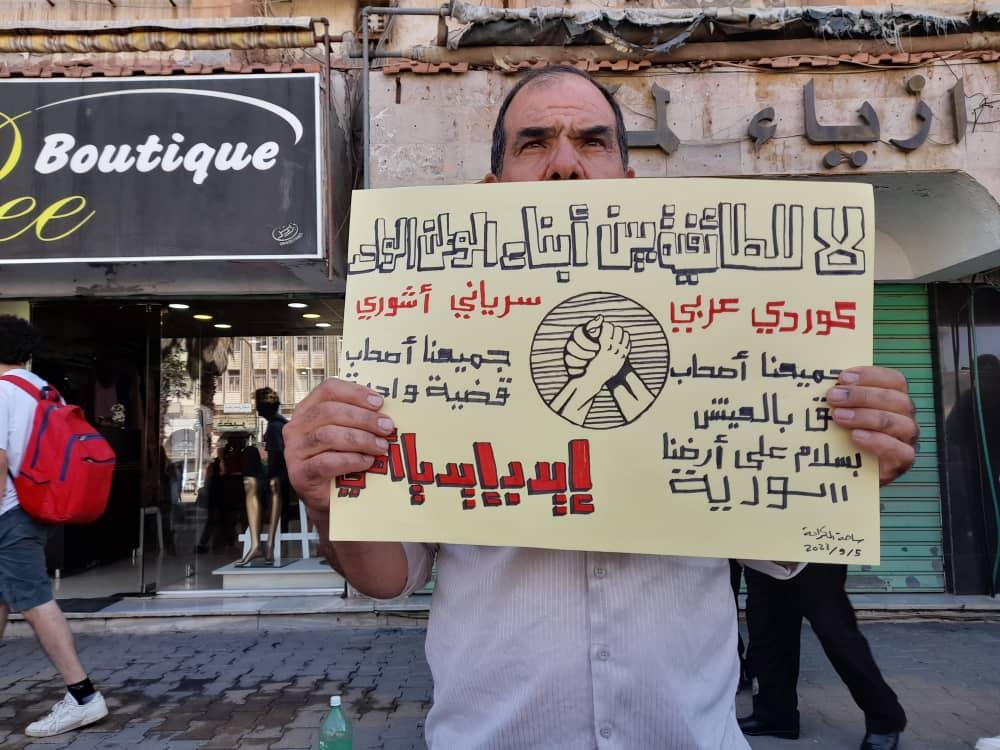 Boutique
ee
ازياء
لا للطائفية بين أبناء الوطن الواحد
كوردي عربي
سرياني أشوري
جميعنا أصحاب
حق بالعيش
بسلام على أرضنا
سورية
جميعنا أصحاب
قضية واحدة
إيد بإيد يا أخي
ساحة الكرامة
2023/9/5